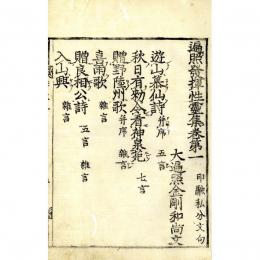 遍照發揮性靈集卷第一
印融私分文句
大遍照金剛和尚文
遊山慕仙詩并序 五言
秋日有勅令看神泉苑 七言
贈野陸州歌并序 雜言
喜雨歌 雜言
贈良相公詩 五言 雜言
入山興 雜言